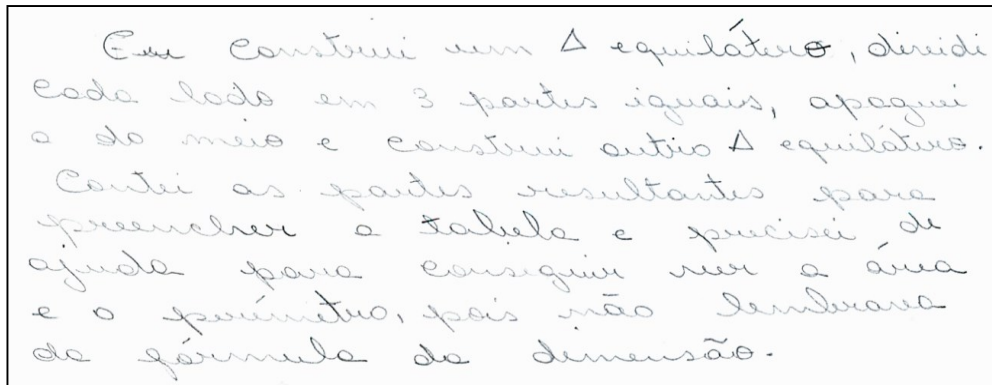 Eu construi um Δ equilátero, dividi
cada lado em 3 partes iguais, apaguei
a do meio e construi outro Δ equilátero.
Contei as partes resultantes para
preencher a tabela e precisei de
ajuda para conseguir ver a área
e o perímetro, pois não lembrava
da fórmula da dimensão.